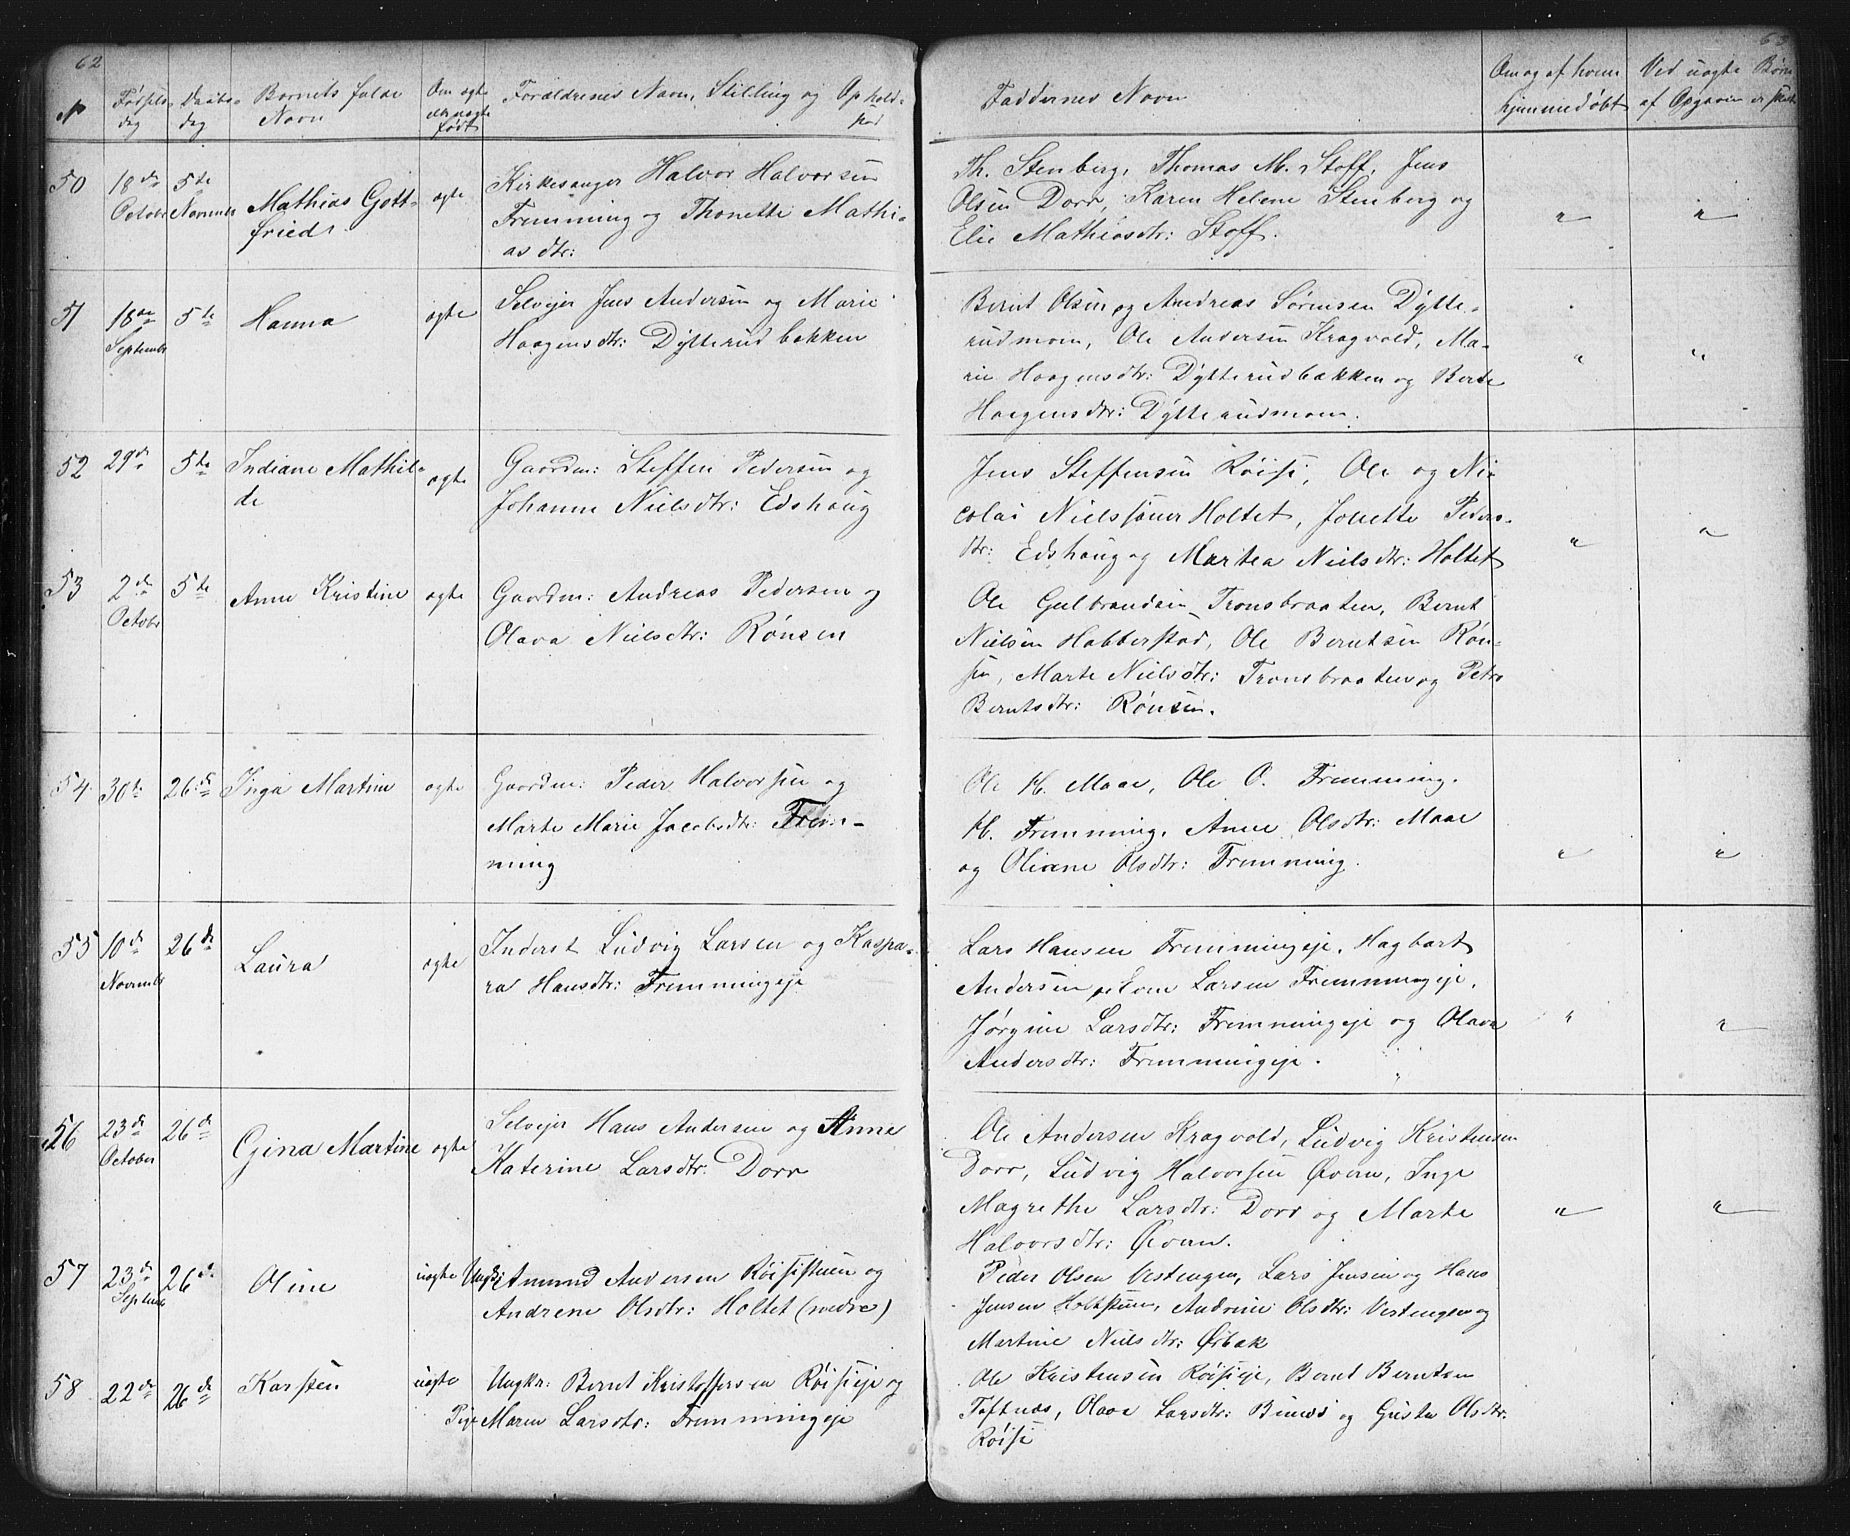 62
№ Fødsels- Daabs- Barnets fulde Om ægte Forældrenes Navn, Stilling og Ophold-
dag dag Navn uægte sted
født
50 18de 5te Kirkesanger Halvor Halvorsen
October Novembr Mathias Gott- ægte Fremming og Thonette Mathi-
fried. asdtr:
51 18de 5te Hanna ægte Selvejer Jens Andersen og Marie
Septembr Haagensdtr: Dytterudbakken
52 29de 5te Indiane Mathil- ægte Gaardm: Steffen Pedersen og
de Johanne Nielsdtr: Edshaug
53 2de 5te Anne Kristine ægte Gaardm: Andreas Pedersen og
Octobr Olava Nielsdtr: Rønsen
54 30te 26de Inga Martine ægte Gaardm: Peder Halvorsen og
Marte Marie Jacobsdtr: Frem-
ming
55 10de 26de Laura ægte Inderst Ludvig Larsen og Kaspa-
Novembr ra Hansdtr: Fremmingeje
56 23de 26de Gina Martine ægte Selvejer Hans Andersen og Anne
October Katerine Larsdtr: Dorr
57 23de 26de Oline uægte Ungk: Amund Andersen Røisistuen og
Septembr Andrene Olsdtr: Holtet (nedre)
58 22de 26de Karsten uægte Ungkr: Bernt Kristoffersen Røisieje og
Pige Maren Larsdtr: Fremmingeje
63
Faddernes Navn Om og af hvem Ved uægte Børn
hjemmedøbt af Opgaven
Th. Stenberg, Thomas M. Stoff, Jens
Olsen Dorr, Karen Helene Stenberg og
Elie Mathiasdtr: Stoff. " "
Bernt Olsen og Andreas Sørensen Dytte-
rudmoen, Ole Andersen Kragvold, Ma-
rie Haagensdtr: Dytterudbakken og Berte " "
Haagensdtr: Dytterudmoen.
Jens Steffensen Røisi, Ole og Ni-
colai Nielssøner Holtet, Jonette Peders-
dtr: Edshaug og Martea Nielsdtr: Holtet " "
Ole Gulbrandsen Tronsbraaten, Bernt
Nielsen Habberstad, Ole Berntsen Røn-
sen, Marte Nielsdtr: Tronsbraaten og Petra
Berntsdtr: Rønsen.
Ole H. Maae, Ole O. Fremming.
H. Fremming, Anne Olsdtr: Maae
og Oliane Olsdtr: Fremming. " "
Lars Hansen Fremmingeje, Hagbart
Andersen, Even Larsen Fremmingeje,
Jørgine Larsdtr: Fremmingeje og Olava " "
Andersdtr: Fremmingeje.
Ole Andersen Kragvold, Ludvig Kristensen
Dorr, Ludvig Halvorsen Øvern, Inge
Magrethe Larsdtr: Dorr og Marte " "
Halvorsdtr: Øvern.
Peder Olsen Vestengen, Lars Jensen og Hans
Jensen Holtstuen, Andrine Olsdtr: Vestengen og
Martine Nielsdtr: Ørbak
Ole Kristensen Røisieje, Bernt Berntsen
Toftnæs, Olava Larsdtr: og Gusta Olsdtr:
Røisi